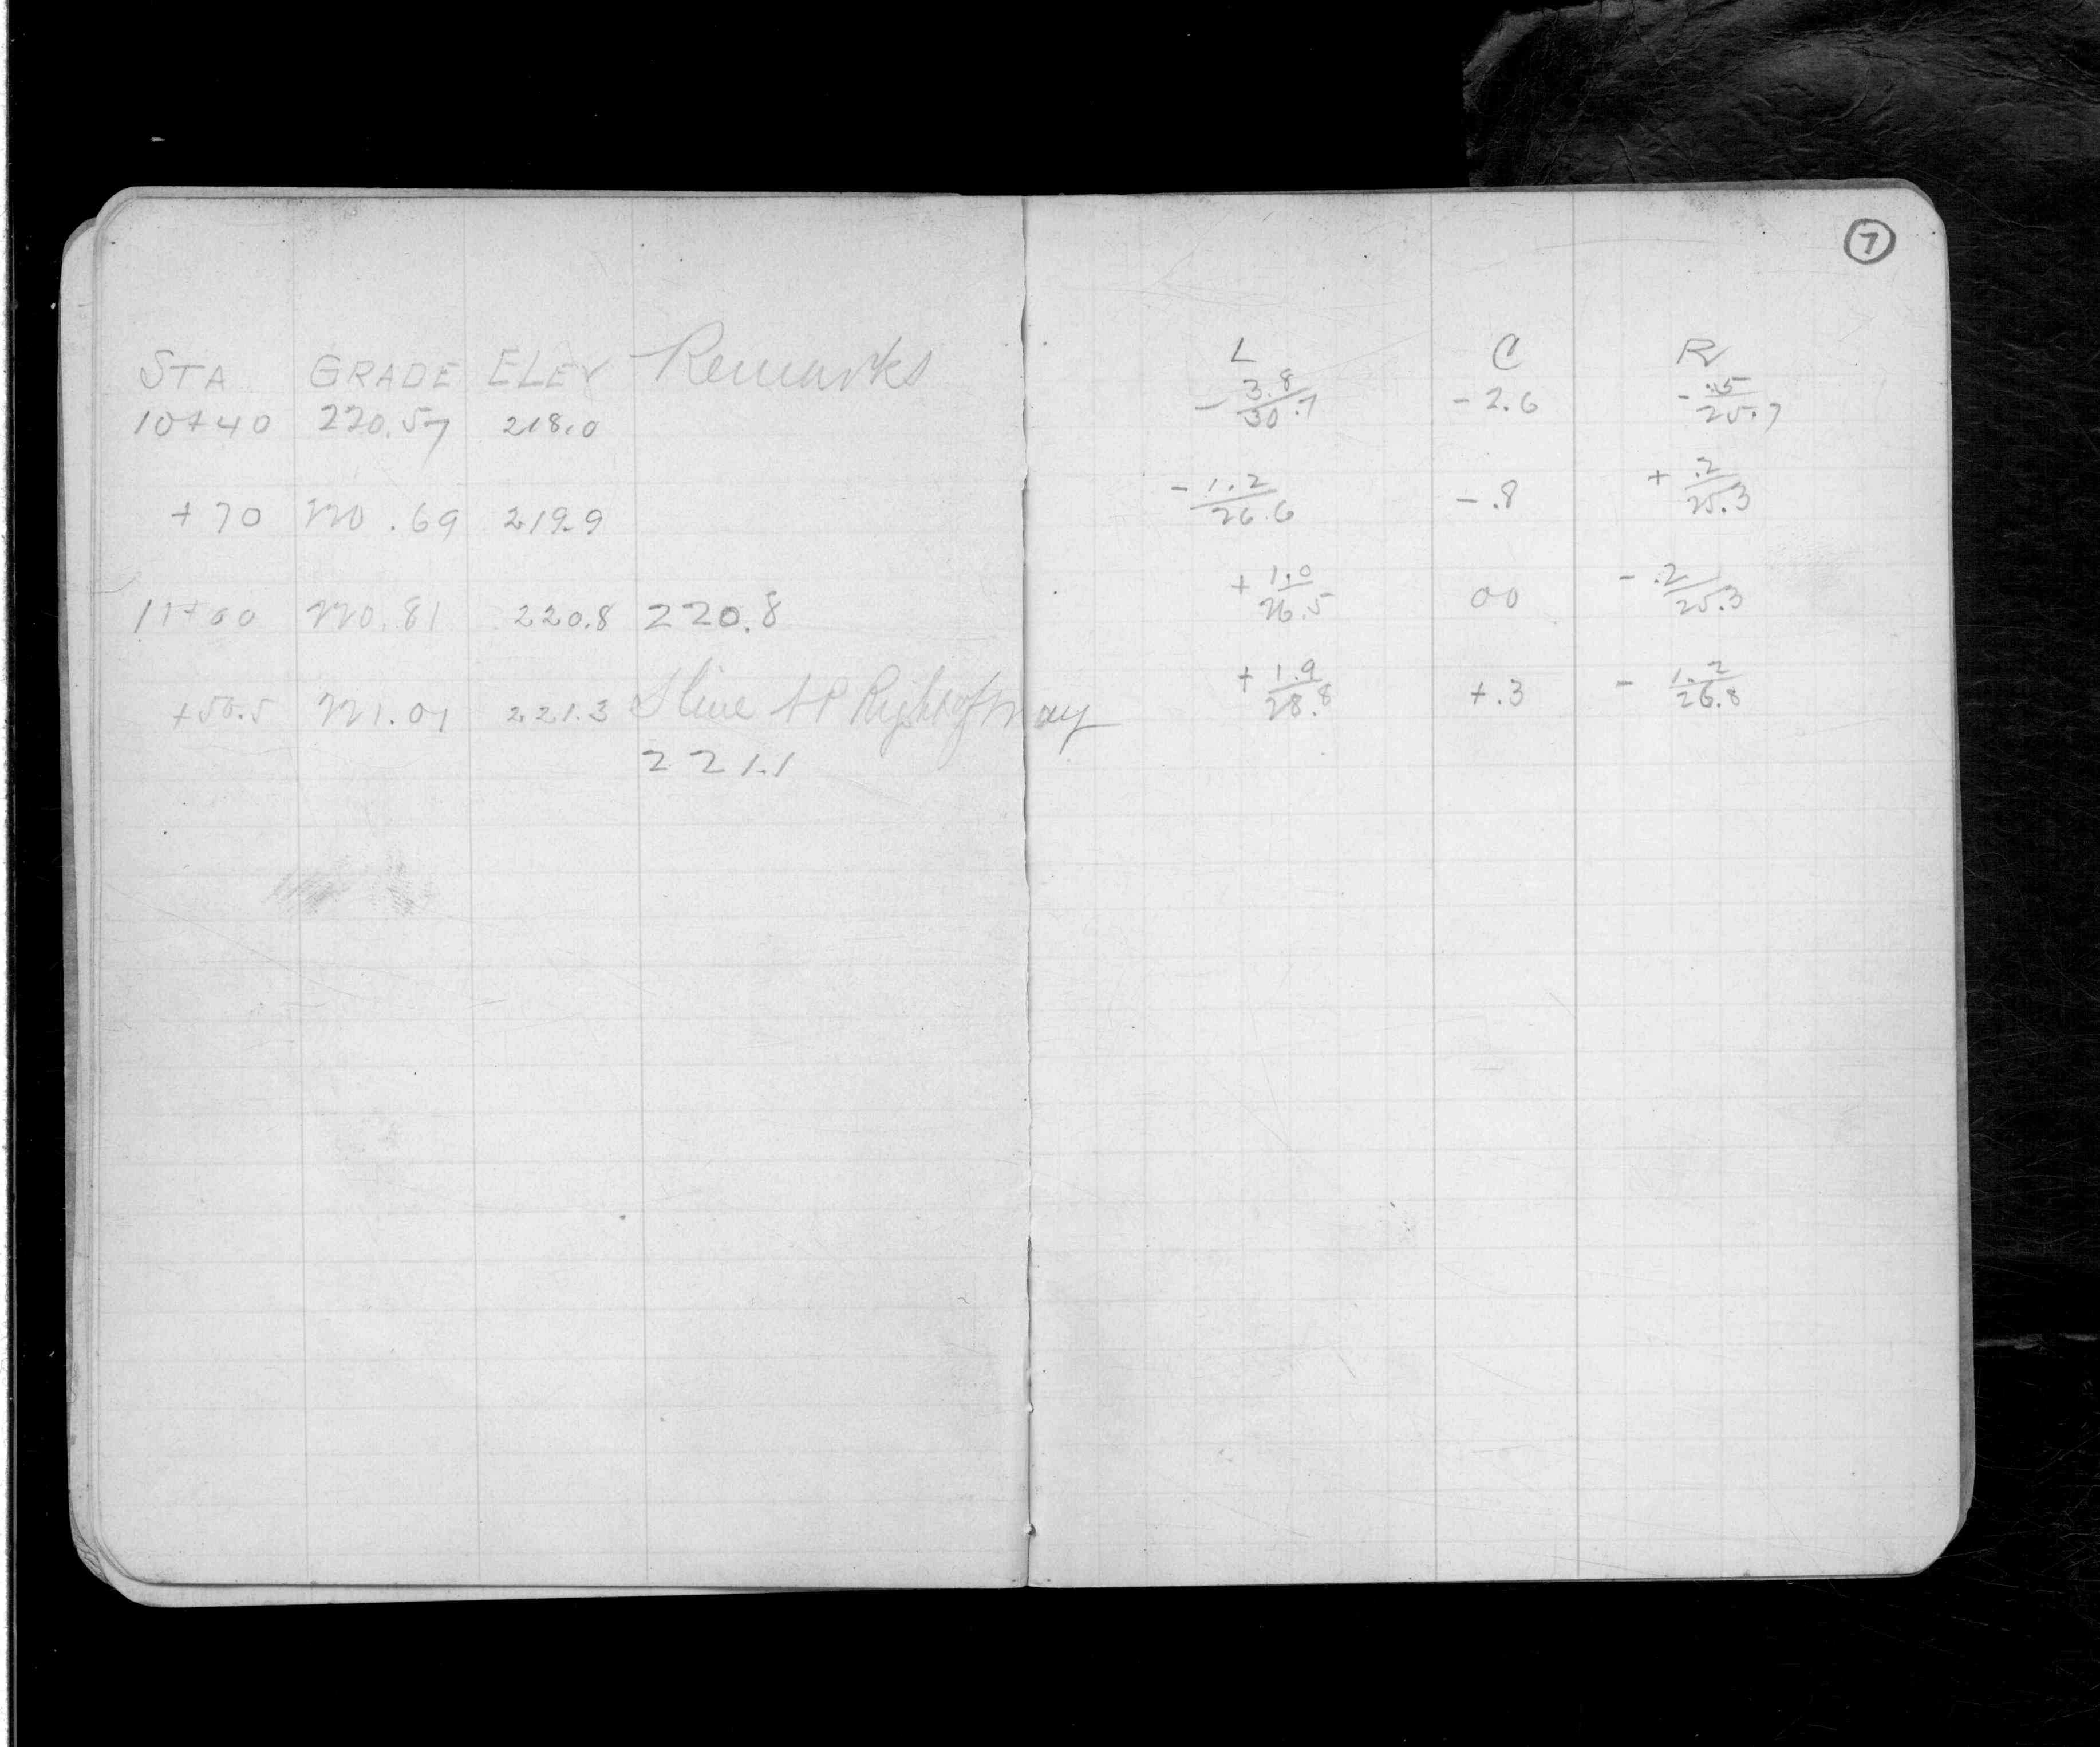 7
STA GRADE ELEV Remarks L C R
10+40 220.57 218.0 - 3.8/30.7 - 2.6 - .5/25.7
+70 220.69 219.9 - 1.2/26.6 - .8 + .2/25.3
11+00 220.81 220.8 220.8 + 1.0/26.5 00 - .2/25.3
+50.5 221.01 221.3 S line Right of Way + 1.9/28.8 +.3 - 1.2/26.8
221.1